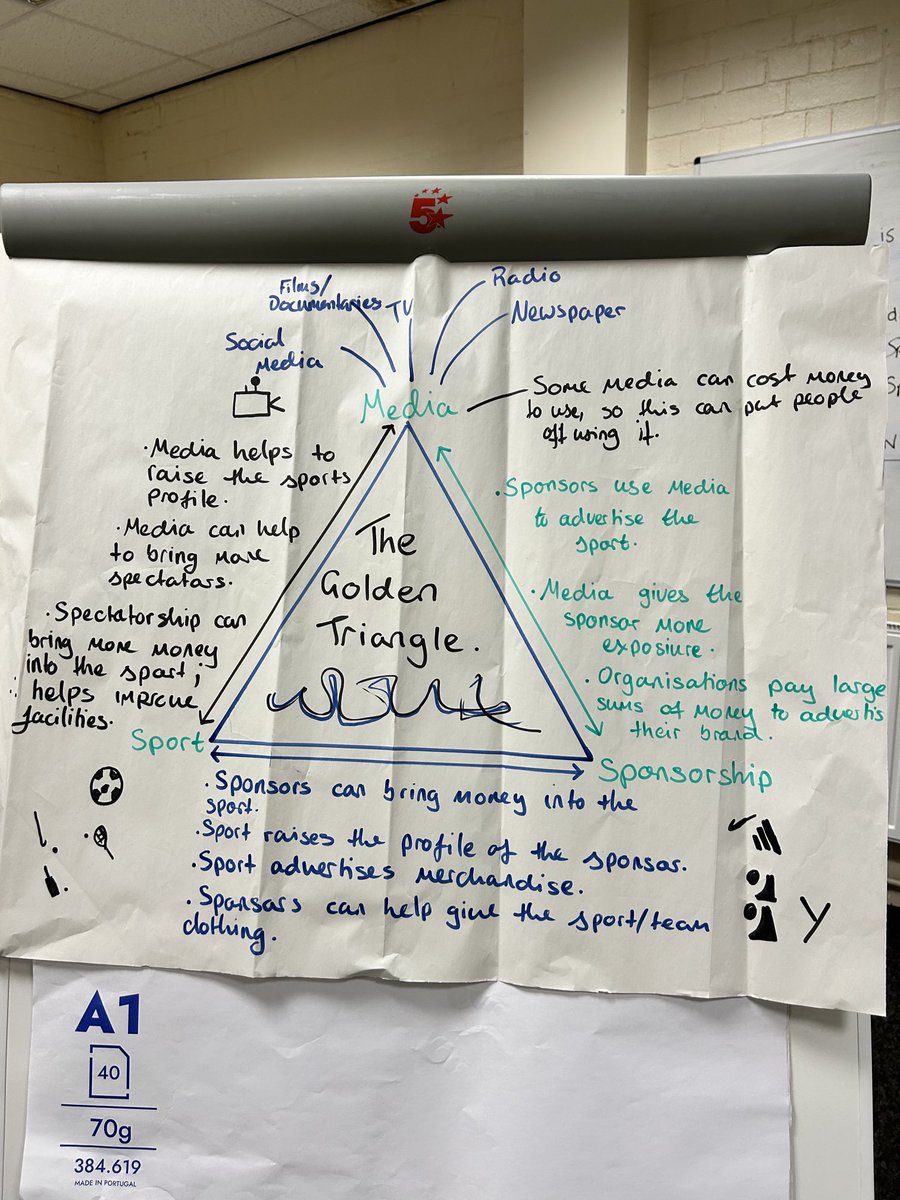 5
is
Films/
Documentaries
TV
Radio
Newspaper
Social
Media
Media
Some Media can cost money
to use, so this can put people
off using it.
· Media helps to
raise the sports
profile.
· Media can help
to bring more
spectators.
· Spectatorship can
bring more money
into the sport;
∴ helps improve
facilities.
The
Golden
Triangle.
· Sponsors use Media
to advertise the
sport.
· Media gives the
sponsor more
exposiure.
· Organisations pay large
sums of money to advertis
their brand.
Sport
Sponsorship
· Sponsors can bring money into the
sport.
· Sport raises the profile of the sponsor.
· Sport advertises merchandise.
· Sponsors can help give the sport/team
clothing.
A1
40
70g
384.619
MADE IN PORTUGAL